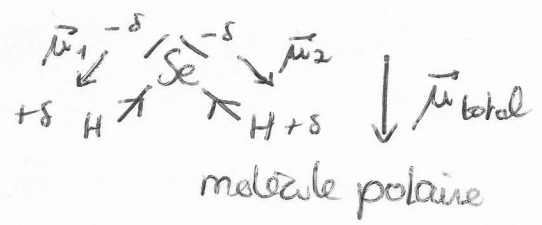 μ⃗₁ -δ -δ μ⃗₂
Se
+δ H H +δ
μ⃗total
molécule polaire